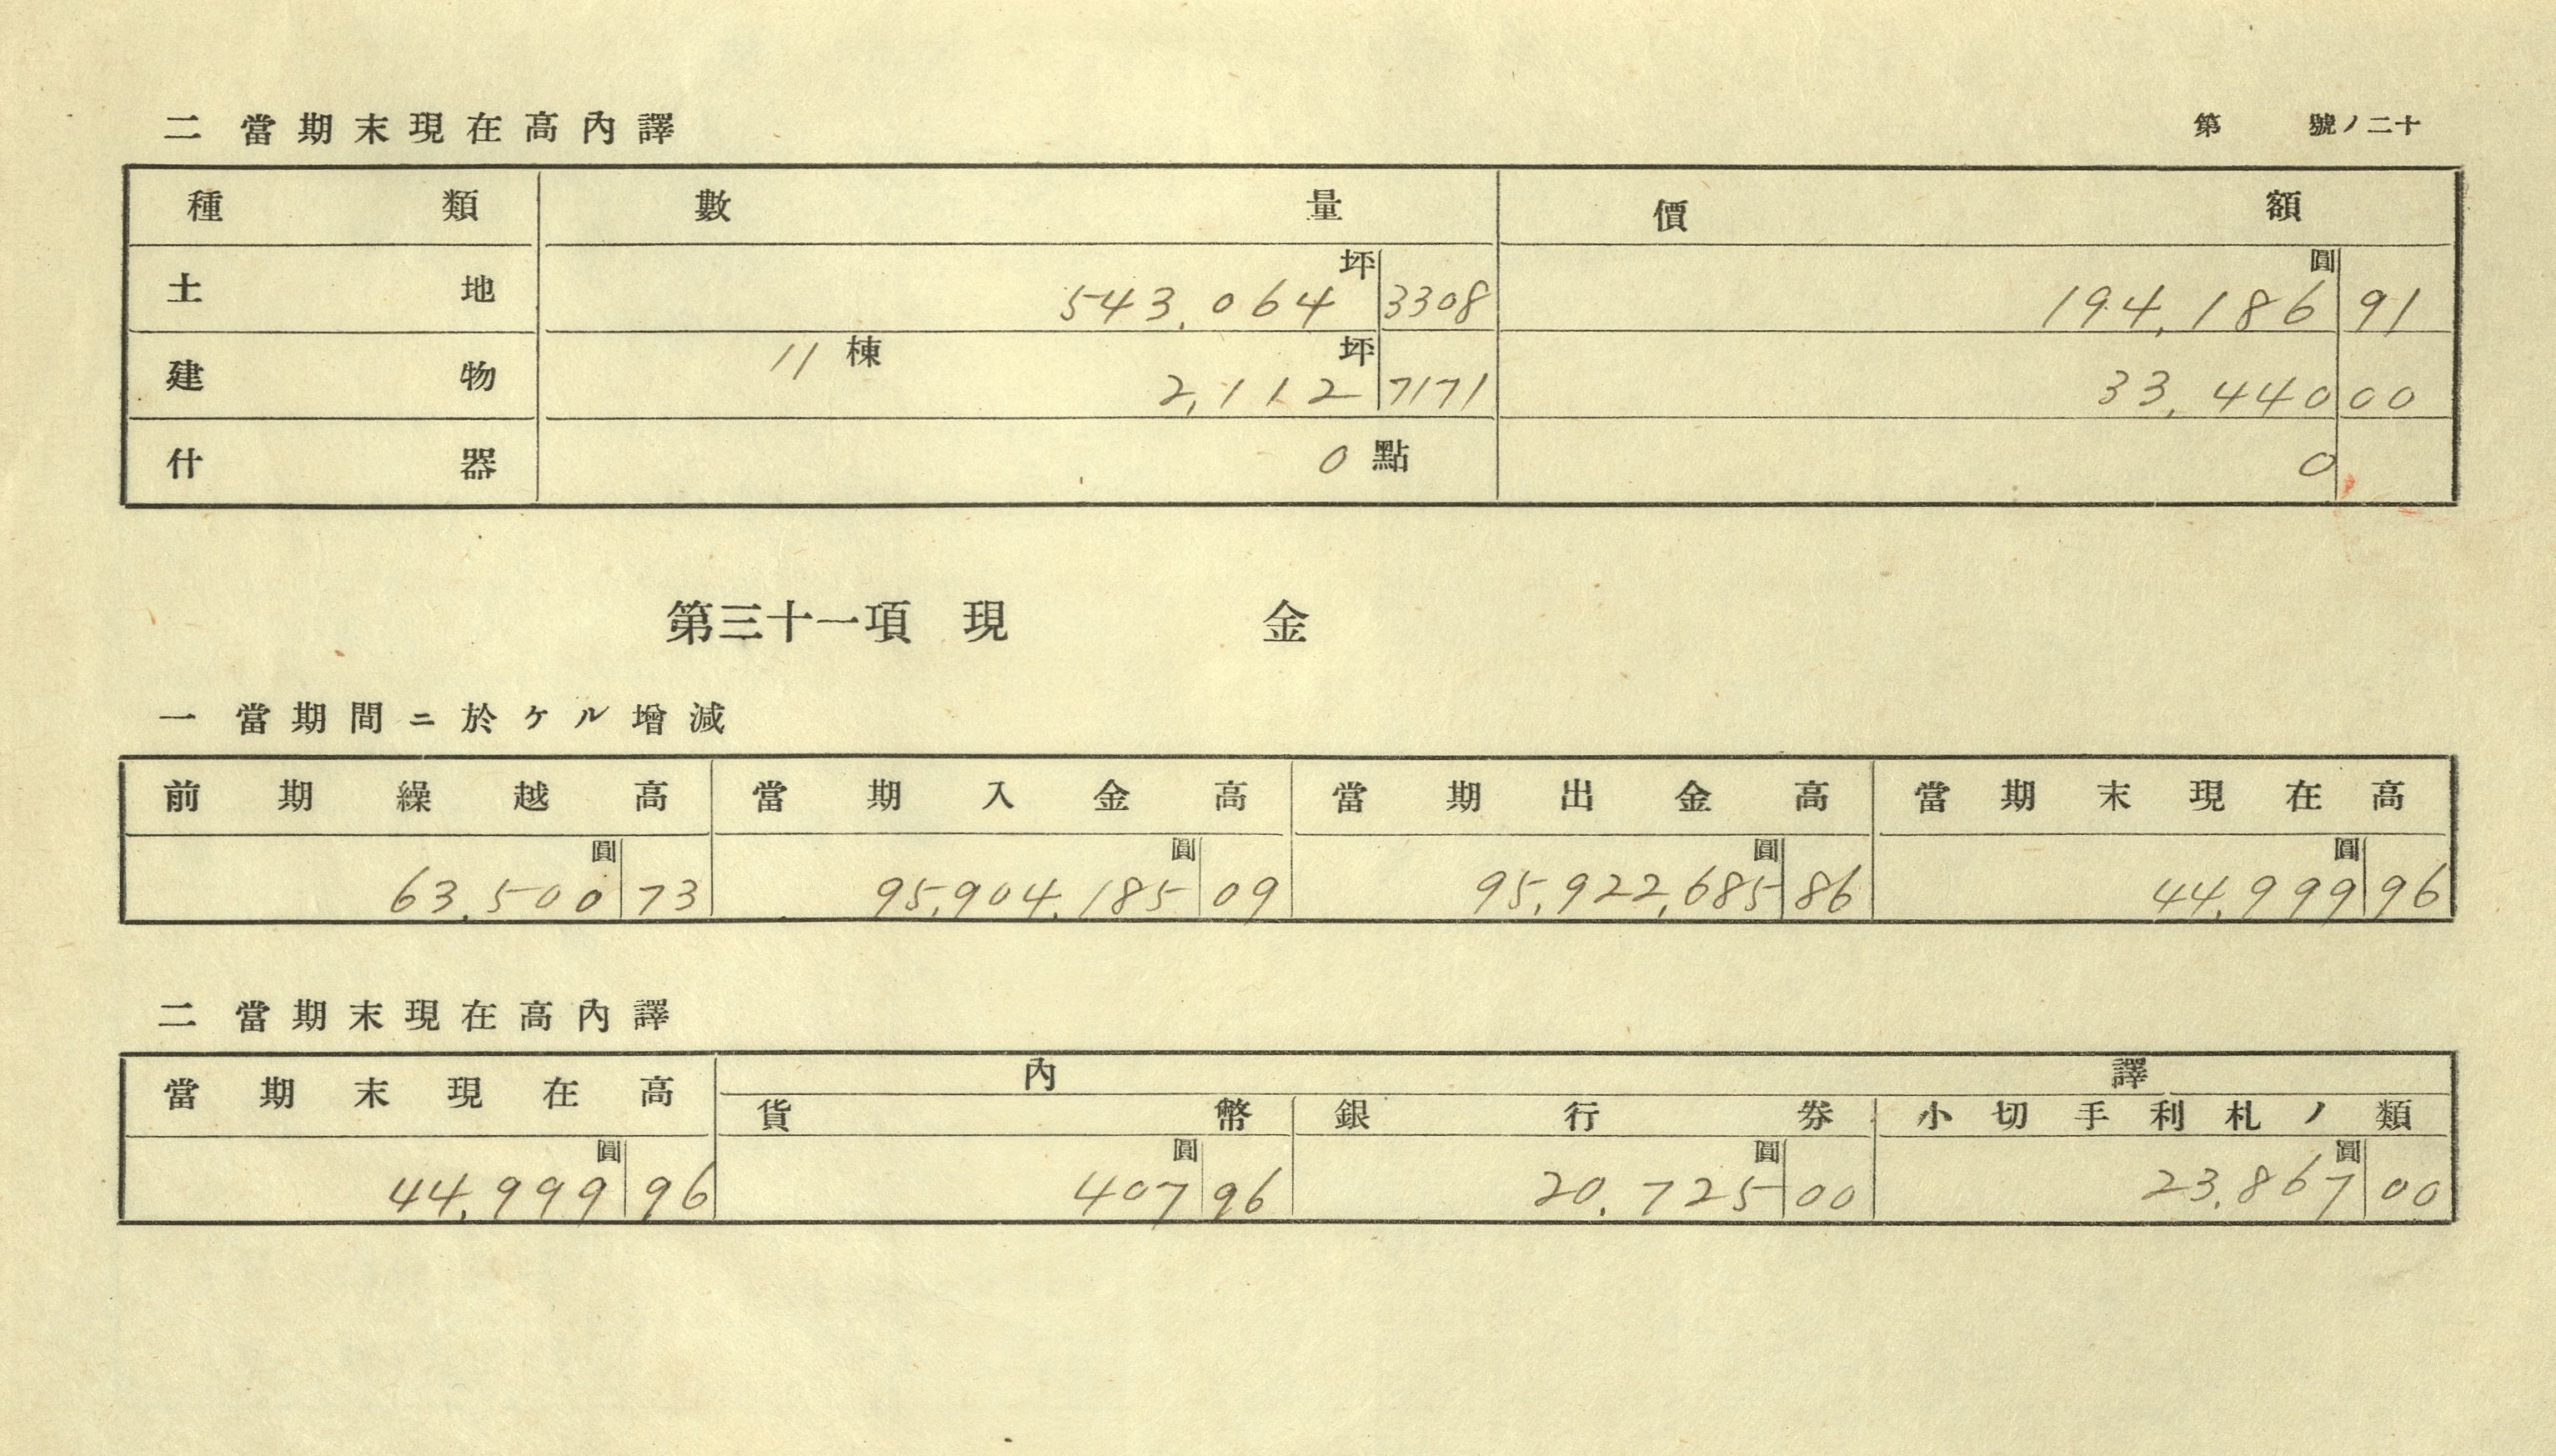 二 當期末現在高內譯 第 號ノ二十
種類 數量 價額
土地 543,064坪3308 194,186圓91
建物 11棟 2,112坪7171 33,44000
什器 0點 0
第三十一項 現金
一 當期間ニ於ケル增減
前期繰越高 當期入金高 當期出金高 當期末現在高
63,500圓73 95,904,185圓09 95,922,685圓86 44,999圓96
二 當期末現在高內譯
當期末現在高 內譯
貨幣 銀行券 小切手利札ノ類
44,999圓96 407圓96 20,725圓00 23,867圓00